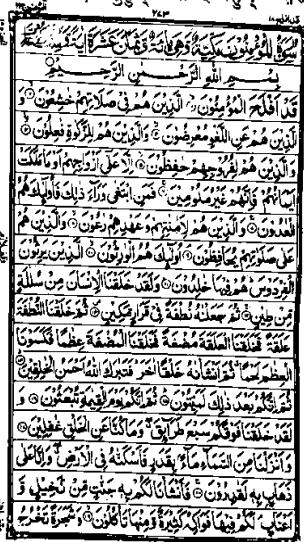 ٢٤٣
سُوْرَةُ الْمُؤْمِنُوْنَ مَكِّيَّةٌ وَّهِيَ مِائَةٌ وَّثَمَانِ عَشْرَةَ اٰيَةً
بِسْمِ اللّٰهِ الرَّحْمٰنِ الرَّحِيْمِ
قَدْ اَفْلَحَ الْمُؤْمِنُوْنَ الَّذِيْنَ هُمْ فِيْ صَلَاتِهِمْ خٰشِعُوْنَ وَ
الَّذِيْنَ هُمْ عَنِ اللَّغْوِ مُعْرِضُوْنَ وَالَّذِيْنَ هُمْ لِلزَّكٰوةِ فٰعِلُوْنَ وَ
الَّذِيْنَ هُمْ لِفُرُوْجِهِمْ حٰفِظُوْنَ اِلَّا عَلٰٓى اَزْوَاجِهِمْ اَوْ مَا مَلَكَتْ
اَيْمَانُهُمْ فَاِنَّهُمْ غَيْرُ مَلُوْمِيْنَ فَمَنِ ابْتَغٰى وَرَآءَ ذٰلِكَ فَاُولٰٓئِكَ هُمُ
الْعٰدُوْنَ وَالَّذِيْنَ هُمْ لِاَمٰنٰتِهِمْ وَعَهْدِهِمْ رٰعُوْنَ وَالَّذِيْنَ هُمْ
عَلٰى صَلَوٰتِهِمْ يُحَافِظُوْنَ اُولٰٓئِكَ هُمُ الْوٰرِثُوْنَ الَّذِيْنَ يَرِثُوْنَ
الْفِرْدَوْسَ هُمْ فِيْهَا خٰلِدُوْنَ وَلَقَدْ خَلَقْنَا الْاِنْسَانَ مِنْ سُلٰلَةٍ
مِّنْ طِيْنٍ ثُمَّ جَعَلْنٰهُ نُطْفَةً فِيْ قَرَارٍ مَّكِيْنٍ ثُمَّ خَلَقْنَا النُّطْفَةَ
عَلَقَةً فَخَلَقْنَا الْعَلَقَةَ مُضْغَةً فَخَلَقْنَا الْمُضْغَةَ عِظٰمًا فَكَسَوْنَا
الْعِظٰمَ لَحْمًا ثُمَّ اَنْشَاْنٰهُ خَلْقًا اٰخَرَ فَتَبٰرَكَ اللّٰهُ اَحْسَنُ الْخٰلِقِيْنَ
ثُمَّ اِنَّكُمْ بَعْدَ ذٰلِكَ لَمَيِّتُوْنَ ثُمَّ اِنَّكُمْ يَوْمَ الْقِيٰمَةِ تُبْعَثُوْنَ وَ
لَقَدْ خَلَقْنَا فَوْقَكُمْ سَبْعَ طَرَآئِقَ وَمَا كُنَّا عَنِ الْخَلْقِ غٰفِلِيْنَ
وَاَنْزَلْنَا مِنَ السَّمَآءِ مَآءً بِقَدَرٍ فَاَسْكَنّٰهُ فِي الْاَرْضِ وَاِنَّا عَلٰى
ذَهَابٍ بِهٖ لَقٰدِرُوْنَ فَاَنْشَاْنَا لَكُمْ بِهٖ جَنّٰتٍ مِّنْ نَّخِيْلٍ وَّ
اَعْنَابٍ لَكُمْ فِيْهَا فَوَاكِهُ كَثِيْرَةٌ وَّمِنْهَا تَاْكُلُوْنَ وَشَجَرَةً تَخْرُجُ